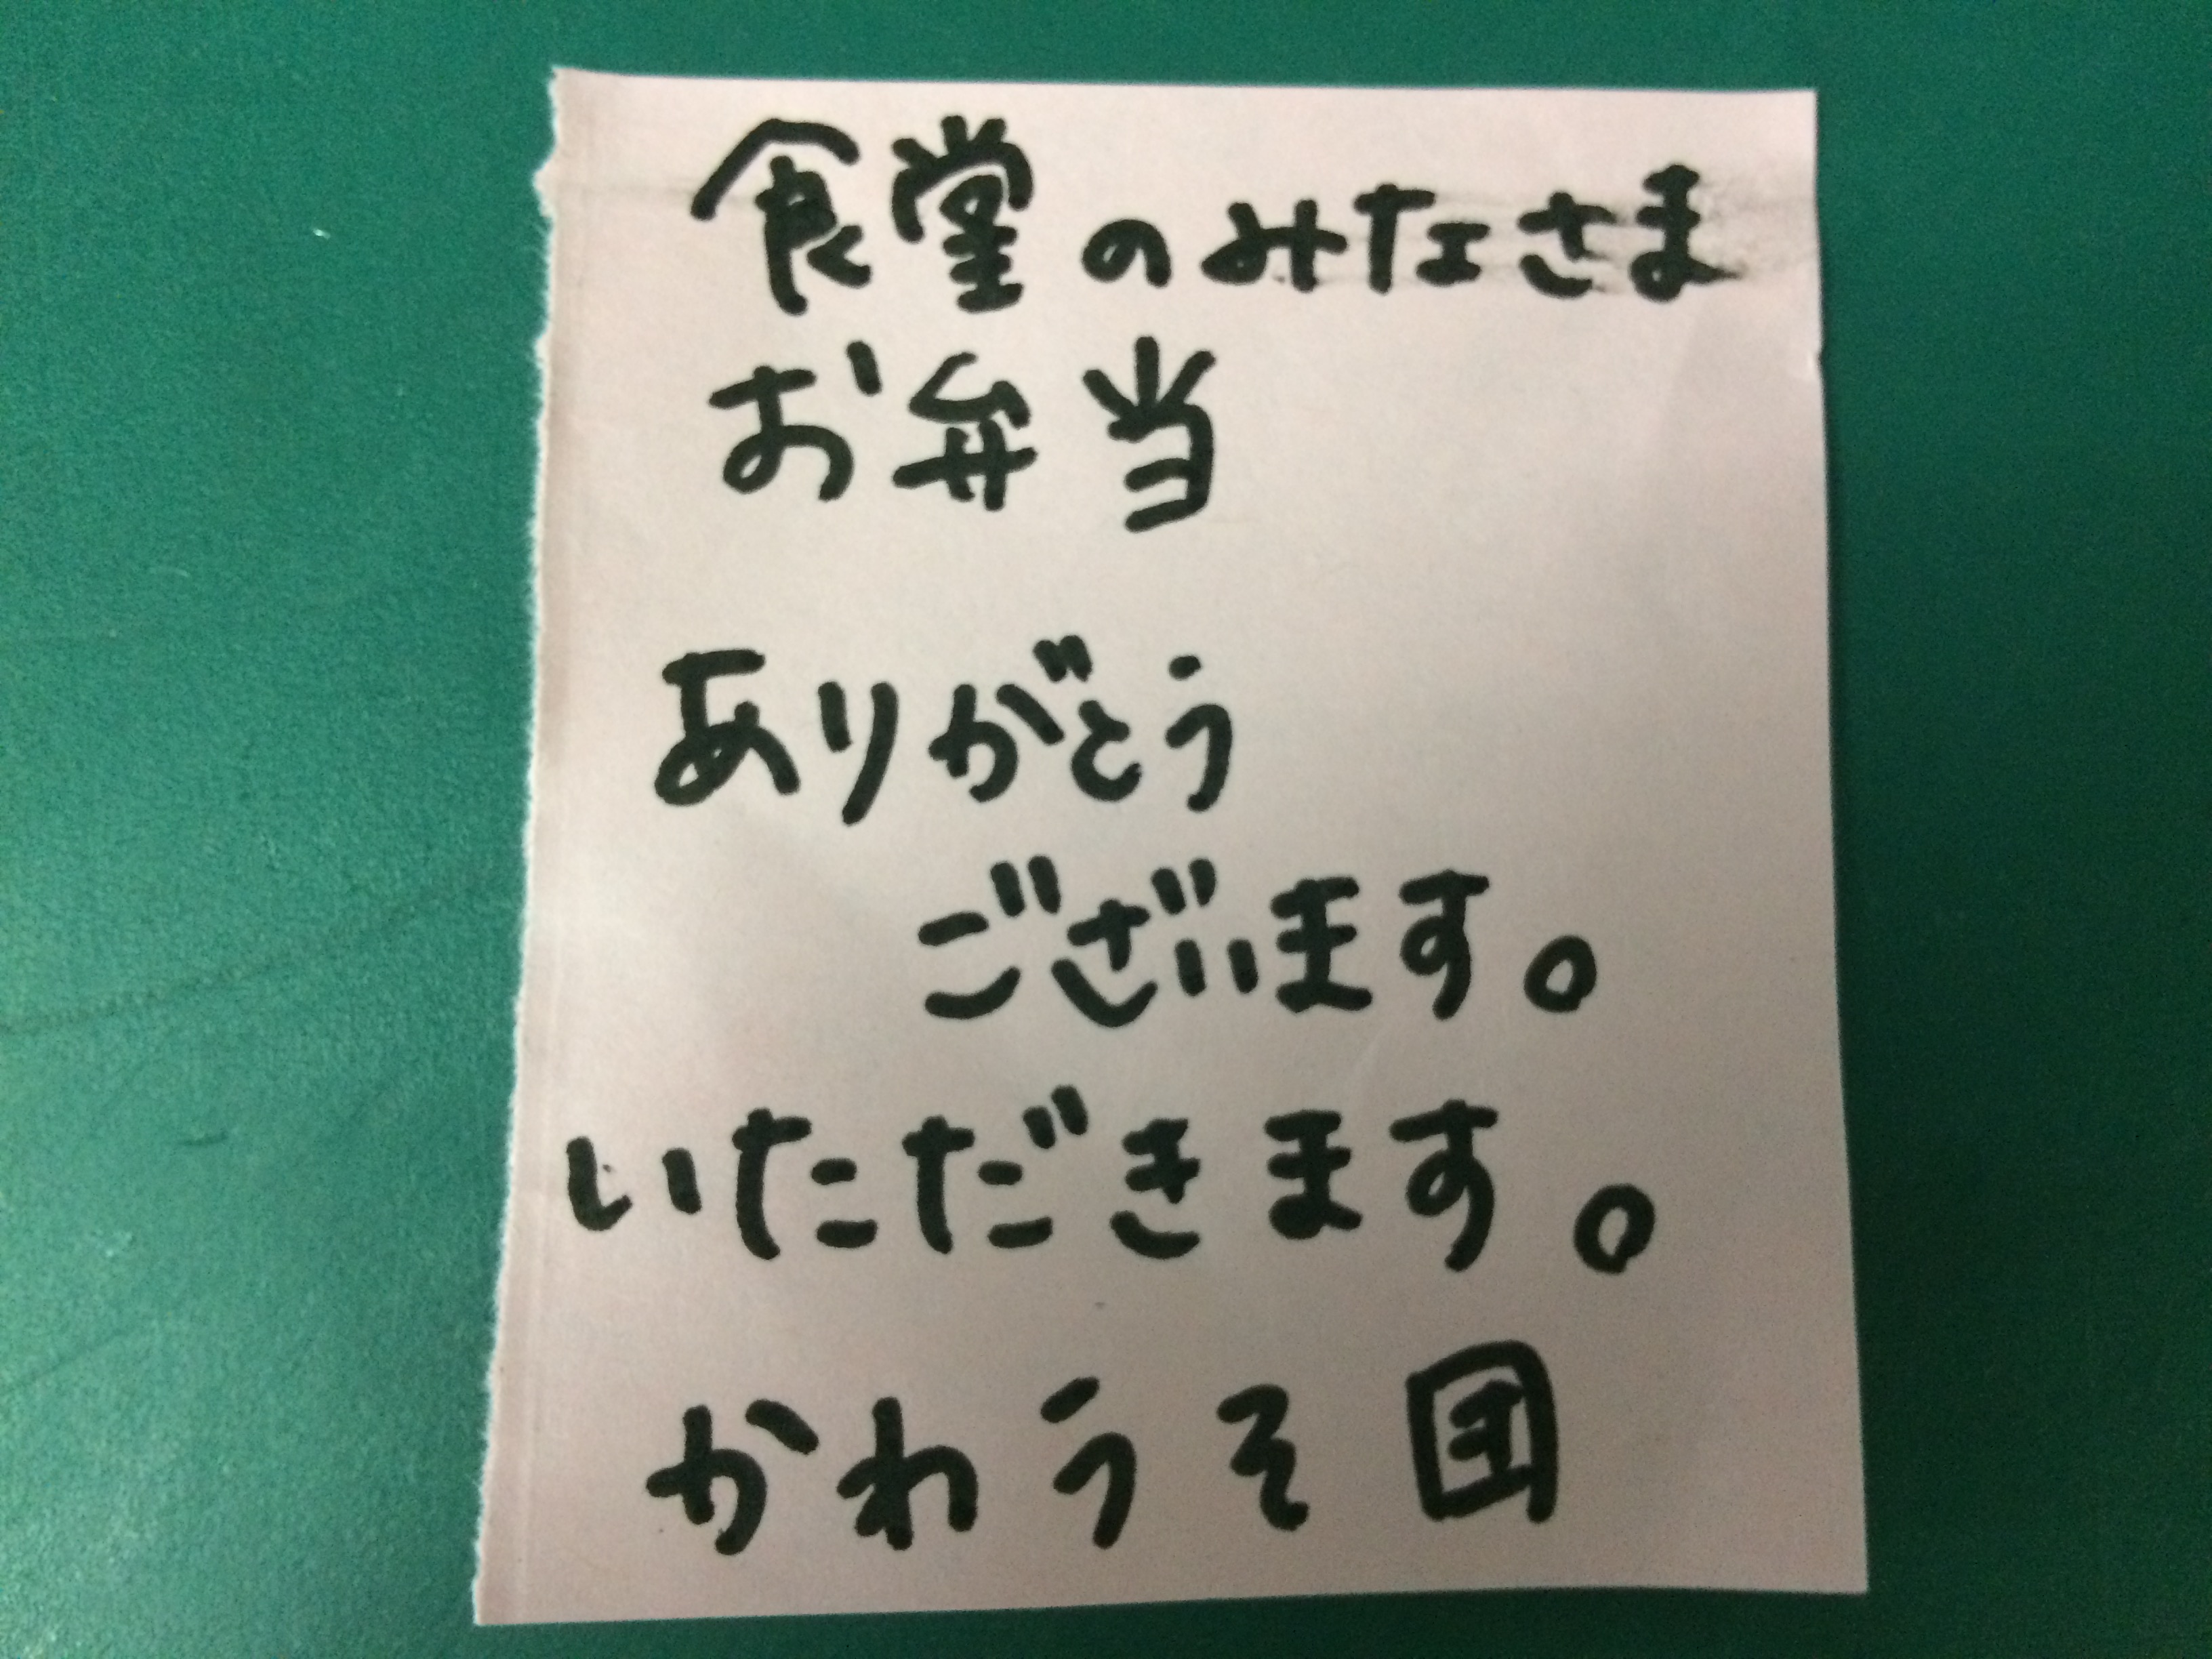 食堂のみなさま
お弁当
ありがとう
ございます。
いただきます。
かわうそ団